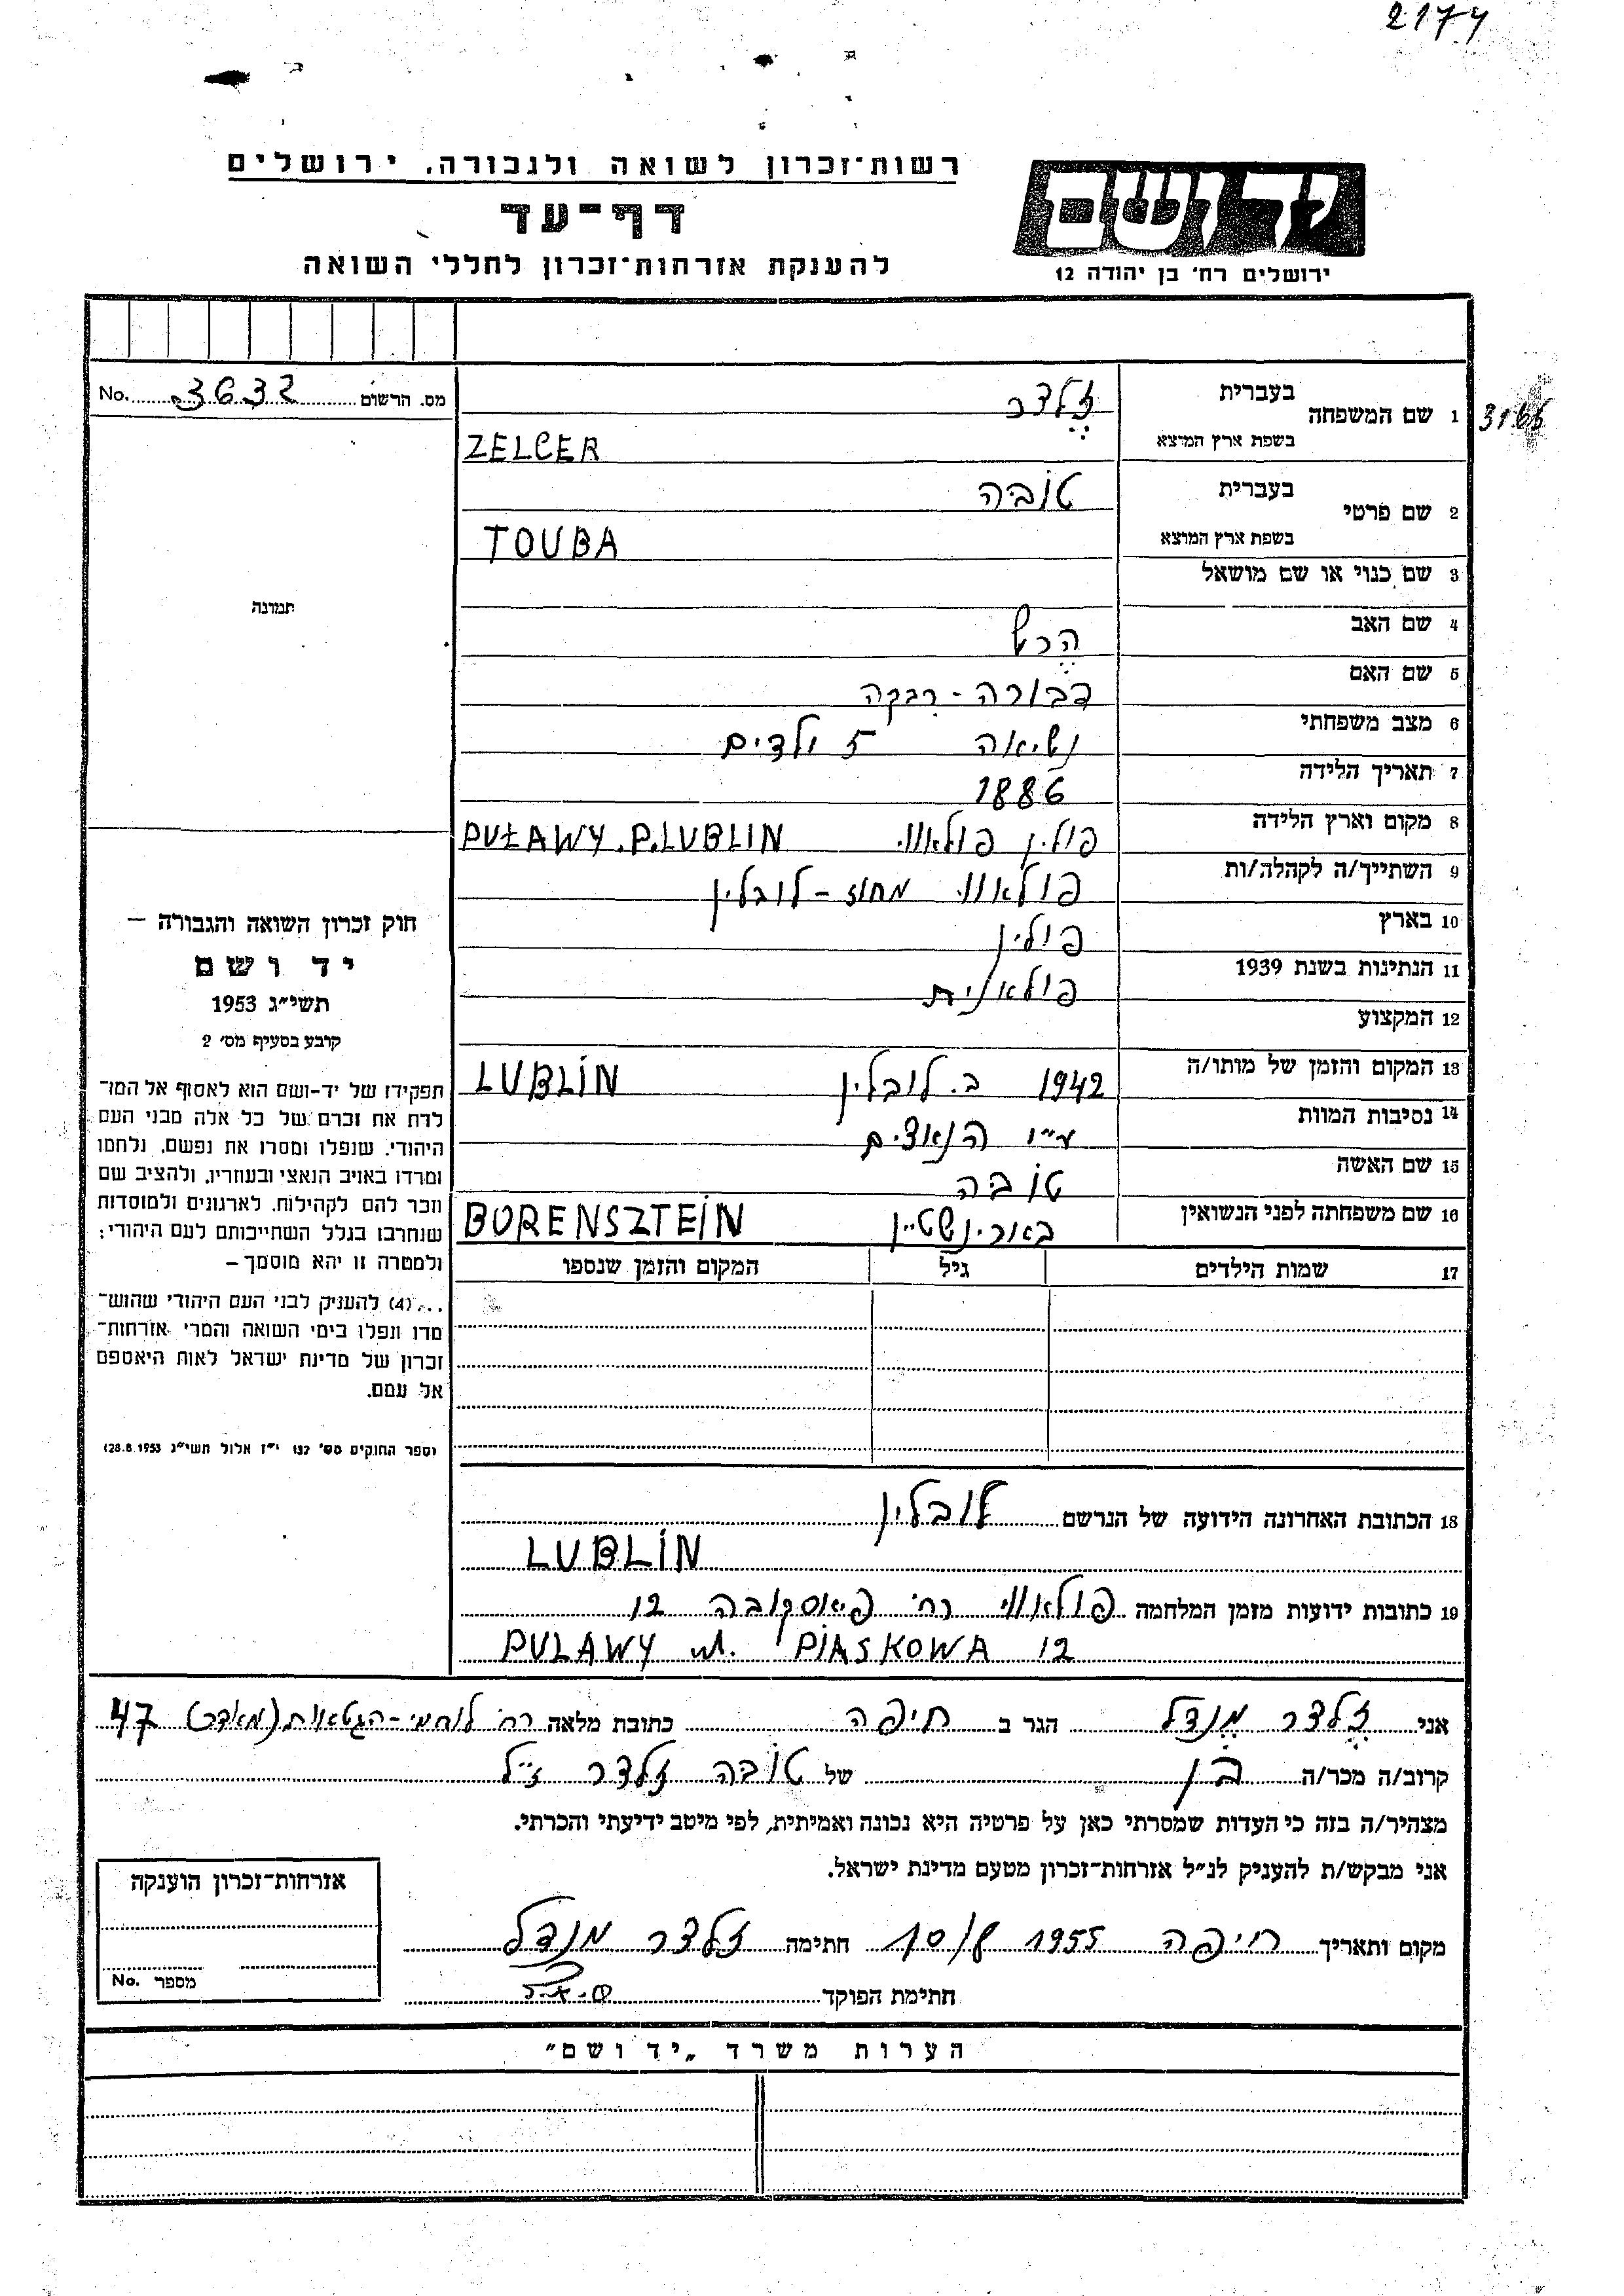 2174
רשות־זכרון לשואה ולגבורה, ירושלים
ידושם
דף־עד
להענקת אזרחות־זכרון לחללי השואה
ירושלים רח׳ בן יהודה 12
מס. הרשום 3632 No.
3166
1 שם המשפחה
בעברית זלצר
בשפת ארץ המוצא ZELCER
2 שם פרטי
בעברית טובה
בשפת ארץ המוצא TOUBA
3 שם כנוי או שם מושאל
4 שם האב הרש
5 שם האם דבורה - רבקה
6 מצב משפחתי נשיאה 5 ילדים
7 תאריך הלידה 1886
8 מקום וארץ הלידה פולין פולאווי PUŁAWY.P.LUBLIN
9 השתייך/ה לקהלה/ות פולאווי מחוז - לובלין
10 בארץ פולין
11 הנתינות בשנת 1939 פולאנית
12 המקצוע
13 המקום והזמן של מותו/ה 1942 ב. לובלין LUBLIN
14 נסיבות המוות ע״י הנאצים
15 שם האשה טובה
16 שם משפחתה לפני הנשואין באורינשטיין BORENSZTEIN
17 שמות הילדים גיל המקום והזמן שנספו
תמונה
חוק זכרון השואה והגבורה –
יד ושם
תשי״ג 1953
קובע בסעיף מס׳ 2
תפקידו של יד-ושם הוא לאסוף אל המו־
לדת את זכרם של כל אלה מבני העם
היהודי, שנפלו ומסרו את נפשם, נלחמו
ומרדו באויב הנאצי ובעוזריו, ולהציב שם
וזכר להם לקהילות, לארגונים ולמוסדות
שנחרבו בגלל השתייכותם לעם היהודי;
ולמטרה זו יהא מוסמך –
...(4) להעניק לבני העם היהודי שהוש־
מדו ונפלו בימי השואה והמרי אזרחות־
זכרון של מדינת ישראל לאות היאספם
אל עמם.
(ספר החוקים מס׳ 132 י״ז אלול תשי״ג 28.8.1953)
18 הכתובת האחרונה הידועה של הנרשם לובלין
LUBLIN
19 כתובות ידועות מזמן המלחמה פולאווי רח׳ פיאסקובה 12
PULAWY ul. PIASKOWA 12
אני זלצר מנדל הגר ב חיפה כתובת מלאה רח׳ לוחמי - הגטאות (מאדר) 47
קרוב/ה מכר/ה בן של טובה זלצר ז״ל
מצהיר/ה בזה כי העדות שמסרתי כאן על פרטיה היא נכונה ואמיתית, לפי מיטב ידיעתי והכרתי.
אני מבקש/ת להעניק לנ״ל אזרחות־זכרון מטעם מדינת ישראל.
מקום ותאריך חיפה 1955 חתימה זלצר מנדל
חתימת הפוקד
אזרחות־זכרון הוענקה
מספר No.
הערות משרד „יד ושם״